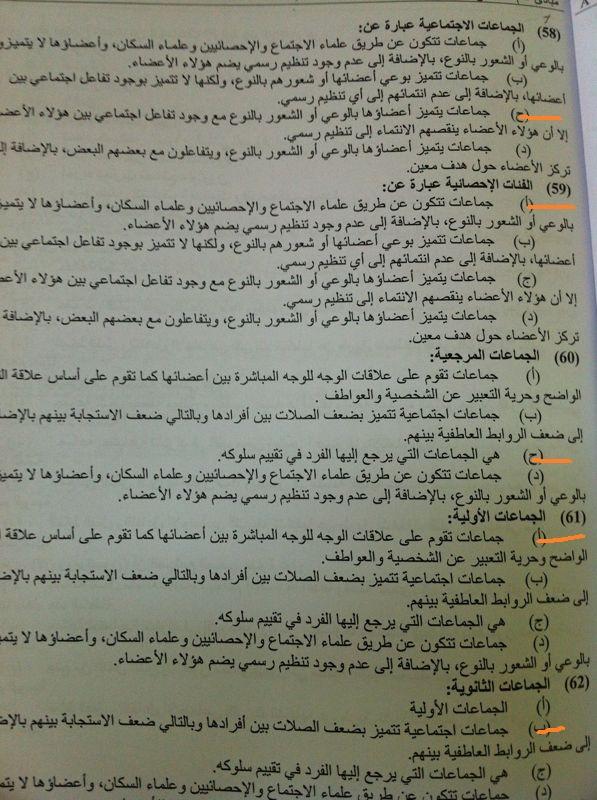 (58) الجماعات الاجتماعية عبارة عن:
(أ) جماعات تتكون عن طريق علماء الاجتماع والإحصائيين وعلماء السكان، وأعضاؤها لا يتميزو
بالوعي أو الشعور بالنوع، بالإضافة إلى عدم وجود تنظيم رسمي يضم هؤلاء الأعضاء.
(ب) جماعات تتميز بوعي أعضائها أو شعورهم بالنوع، ولكنها لا تتميز بوجود تفاعل اجتماعي بين
أعضائها، بالإضافة إلى عدم انتمائهم إلى أي تنظيم رسمي.
(ج) جماعات يتميز أعضاؤها بالوعي أو الشعور بالنوع مع وجود تفاعل اجتماعي بين هؤلاء الأعضا
إلا أن هؤلاء الأعضاء ينقصهم الانتماء إلى تنظيم رسمي.
(د) جماعات يتميز أعضاؤها بالوعي أو الشعور بالنوع، ويتفاعلون مع بعضهم البعض، بالإضافة إلى
تركز الأعضاء حول هدف معين.
(59) الفئات الإحصائية عبارة عن:
(أ) جماعات تتكون عن طريق علماء الاجتماع والإحصائيين وعلماء السكان، وأعضاؤها لا يتميز
بالوعي أو الشعور بالنوع، بالإضافة إلى عدم وجود تنظيم رسمي يضم هؤلاء الأعضاء.
(ب) جماعات تتميز بوعي أعضائها أو شعورهم بالنوع، ولكنها لا تتميز بوجود تفاعل اجتماعي بين
أعضائها، بالإضافة إلى عدم انتمائهم إلى أي تنظيم رسمي.
(ج) جماعات يتميز أعضاؤها بالوعي أو الشعور بالنوع مع وجود تفاعل اجتماعي بين هؤلاء الأعض
إلا أن هؤلاء الأعضاء ينقصهم الانتماء إلى تنظيم رسمي.
(د) جماعات يتميز أعضاؤها بالوعي أو الشعور بالنوع، ويتفاعلون مع بعضهم البعض، بالإضافة
تركز الأعضاء حول هدف معين.
(60) الجماعات المرجعية:
(أ) جماعات تقوم على علاقات الوجه للوجه المباشرة بين أعضائها كما تقوم على أساس علاقة
الواضح وحرية التعبير عن الشخصية والعواطف .
(ب) جماعات اجتماعية تتميز بضعف الصلات بين أفرادها وبالتالي ضعف الاستجابة بينهم بالإضا
إلى ضعف الروابط العاطفية بينهم.
(ج) هي الجماعات التي يرجع إليها الفرد في تقييم سلوكه.
(د) جماعات تتكون عن طريق علماء الاجتماع والإحصائيين وعلماء السكان، وأعضاؤها لا يتميز
بالوعي أو الشعور بالنوع، بالإضافة إلى عدم وجود تنظيم رسمي يضم هؤلاء الأعضاء.
(61) الجماعات الأولية:
(أ) جماعات تقوم على علاقات الوجه للوجه المباشرة بين أعضائها كما تقوم على أساس علاقة
الواضح وحرية التعبير عن الشخصية والعواطف.
(ب) جماعات اجتماعية تتميز بضعف الصلات بين أفرادها وبالتالي ضعف الاستجابة بينهم بالإضا
إلى ضعف الروابط العاطفية بينهم.
(ج) هي الجماعات التي يرجع إليها الفرد في تقييم سلوكه.
(د) جماعات تتكون عن طريق علماء الاجتماع والإحصائيين وعلماء السكان، وأعضاؤها لا يتمي
بالوعي أو الشعور بالنوع، بالإضافة إلى عدم وجود تنظيم رسمي يضم هؤلاء الأعضاء.
(62) الجماعات الثانوية:
(أ) الجماعات الأولية
(ب) جماعات اجتماعية تتميز بضعف الصلات بين أفرادها وبالتالي ضعف الاستجابة بينهم بالإضا
إلى ضعف الروابط العاطفية بينهم.
(ج) هي الجماعات التي يرجع إليها الفرد في تقييم سلوكه.
(د) جماعات تتكون عن طريق علماء الاجتماع والإحصائيين وعلماء السكان، وأعضاؤها لا